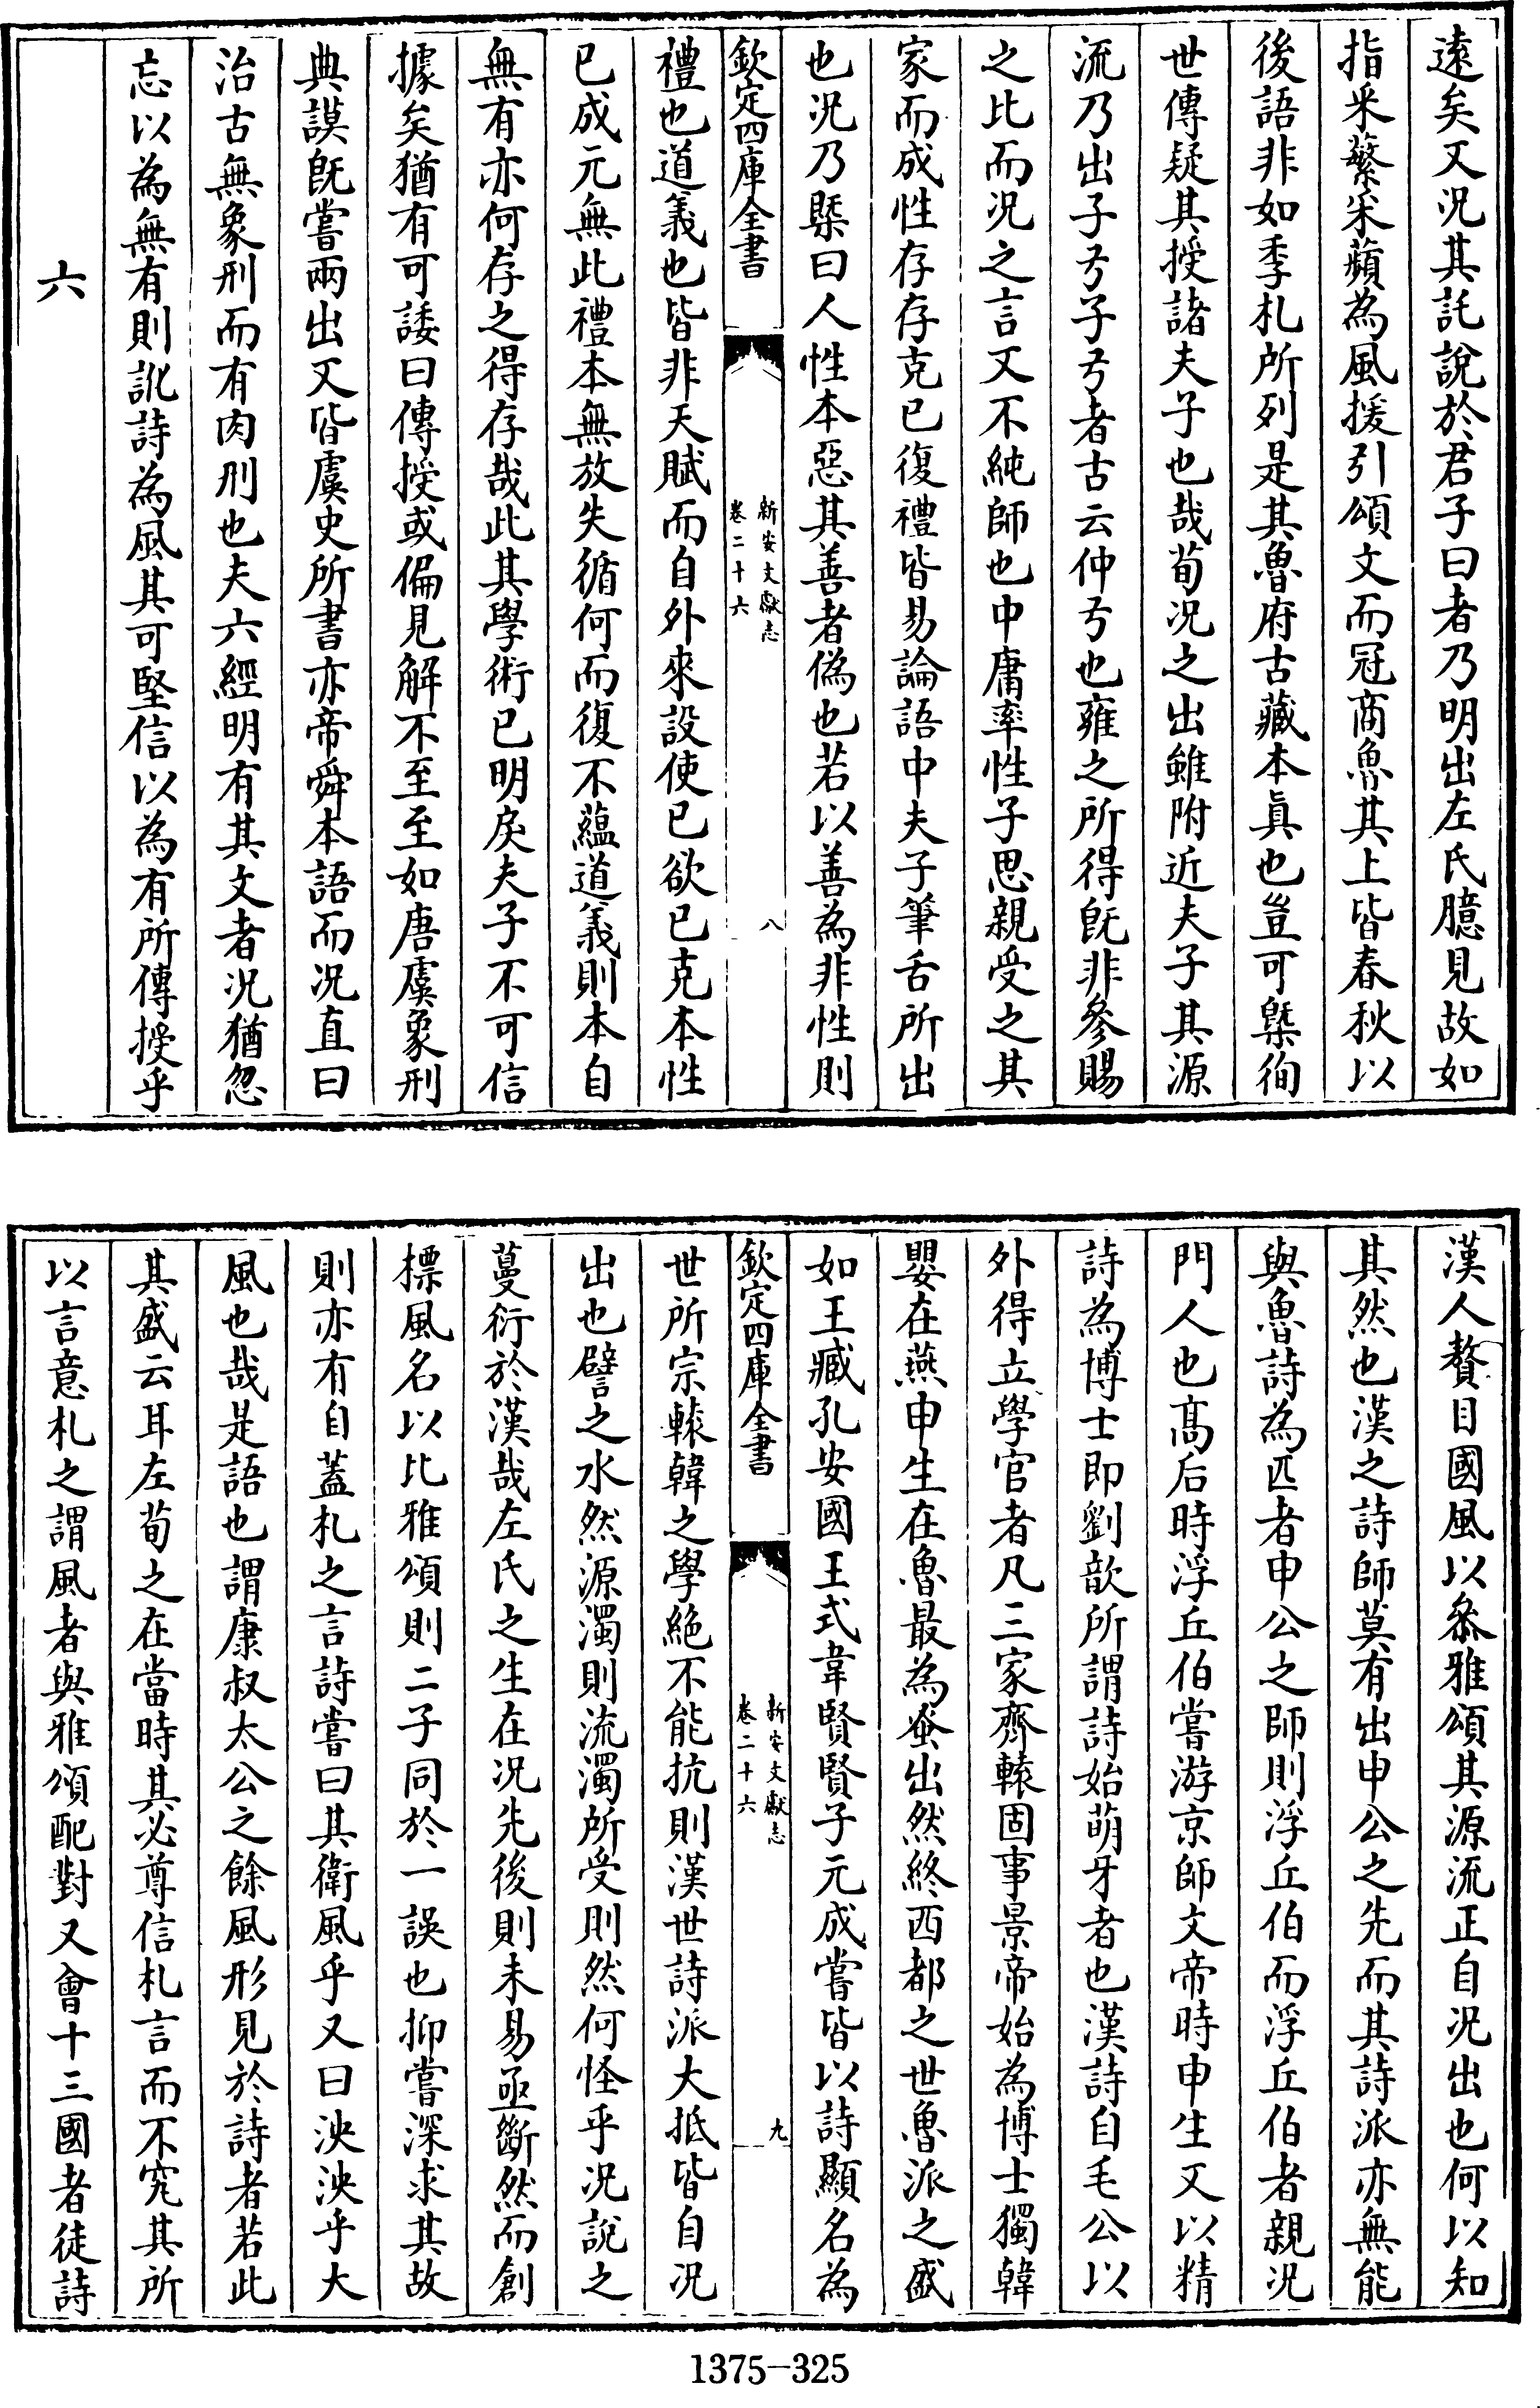 遠矣又况其託說於君子曰者乃明出左氏臆見故如
指采蘩采蘋為風援引頌文而冠商魯其上皆春秋以
後語非如季札所列是其魯府古藏本真也豈可槩徇
世傳疑其授諸夫子也哉荀况之出雖附近夫子其源
流乃出子弓子弓者古云仲弓也雍之所得既非參賜
之比而况之言又不純師也中庸率性子思親受之其
家而成性存存克已復禮皆易論語中夫子筆舌所出
也况乃槩曰人性本惡其善者偽也若以善為非性則
欽定四庫全書
新安文獻志
卷二十六
八
禮也道義也皆非天賦而自外來設使已欲已克本性
已成元無此禮本無放失循何而復不蘊道義則本自
無有亦何存之得存哉此其學術已明戾夫子不可信
據矣猶有可諉曰傳授或偏見解不至至如唐虞象刑
典謨既嘗兩出又皆虞史所書亦帝舜本語而况直曰
治古無象刑而有肉刑也夫六經明有其文者况猶忽
忘以為無有則訛詩為風其可堅信以為有所傳授乎
六
漢人贅目國風以叅雅頌其源流正自况出也何以知
其然也漢之詩師莫有出申公之先而其詩派亦無能
與魯詩為匹者申公之師則浮丘伯而浮丘伯者親况
門人也髙后時浮丘伯嘗游京師文帝時申生又以精
詩為博士即劉歆所謂詩始萌牙者也漢詩自毛公以
外得立學官者凡三家齊轅固事景帝始為博士獨韓
嬰在燕申生在魯最為蚤出然終西都之世魯派之盛
如王臧孔安國王式韋賢賢子元成嘗皆以詩顯名為
欽定四庫全書
新安文獻志
卷二十六
九
世所宗轅韓之學絶不能抗則漢世詩派大抵皆自况
出也譬之水然源濁則流濁所受則然何怪乎况說之
蔓衍於漢哉左氏之生在况先後則未易亟斷然而創
標風名以比雅頌則二子同於一誤也抑嘗深求其故
則亦有自蓋札之言詩嘗曰其衛風乎又曰泱泱乎大
風也哉是語也謂康叔太公之餘風形見於詩者若此
其盛云耳左荀之在當時其必尊信札言而不究其所
以言意札之謂風者與雅頌配對又會十三國者徒詩
1375-325